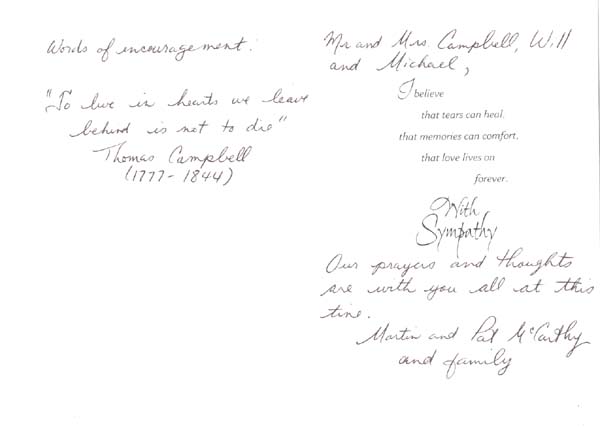 Words of encouragement:
"To live in hearts we leave
behind is not to die"
Thomas Campbell
(1777-1844)
Mr and Mrs. Campbell, Will
and Michael,
I believe
that tears can heal,
that memories can comfort,
that love lives on
forever.
With
Sympathy
Our prayers and thoughts
are with you all at this
time.
Martin and Pat McCarthy
and family